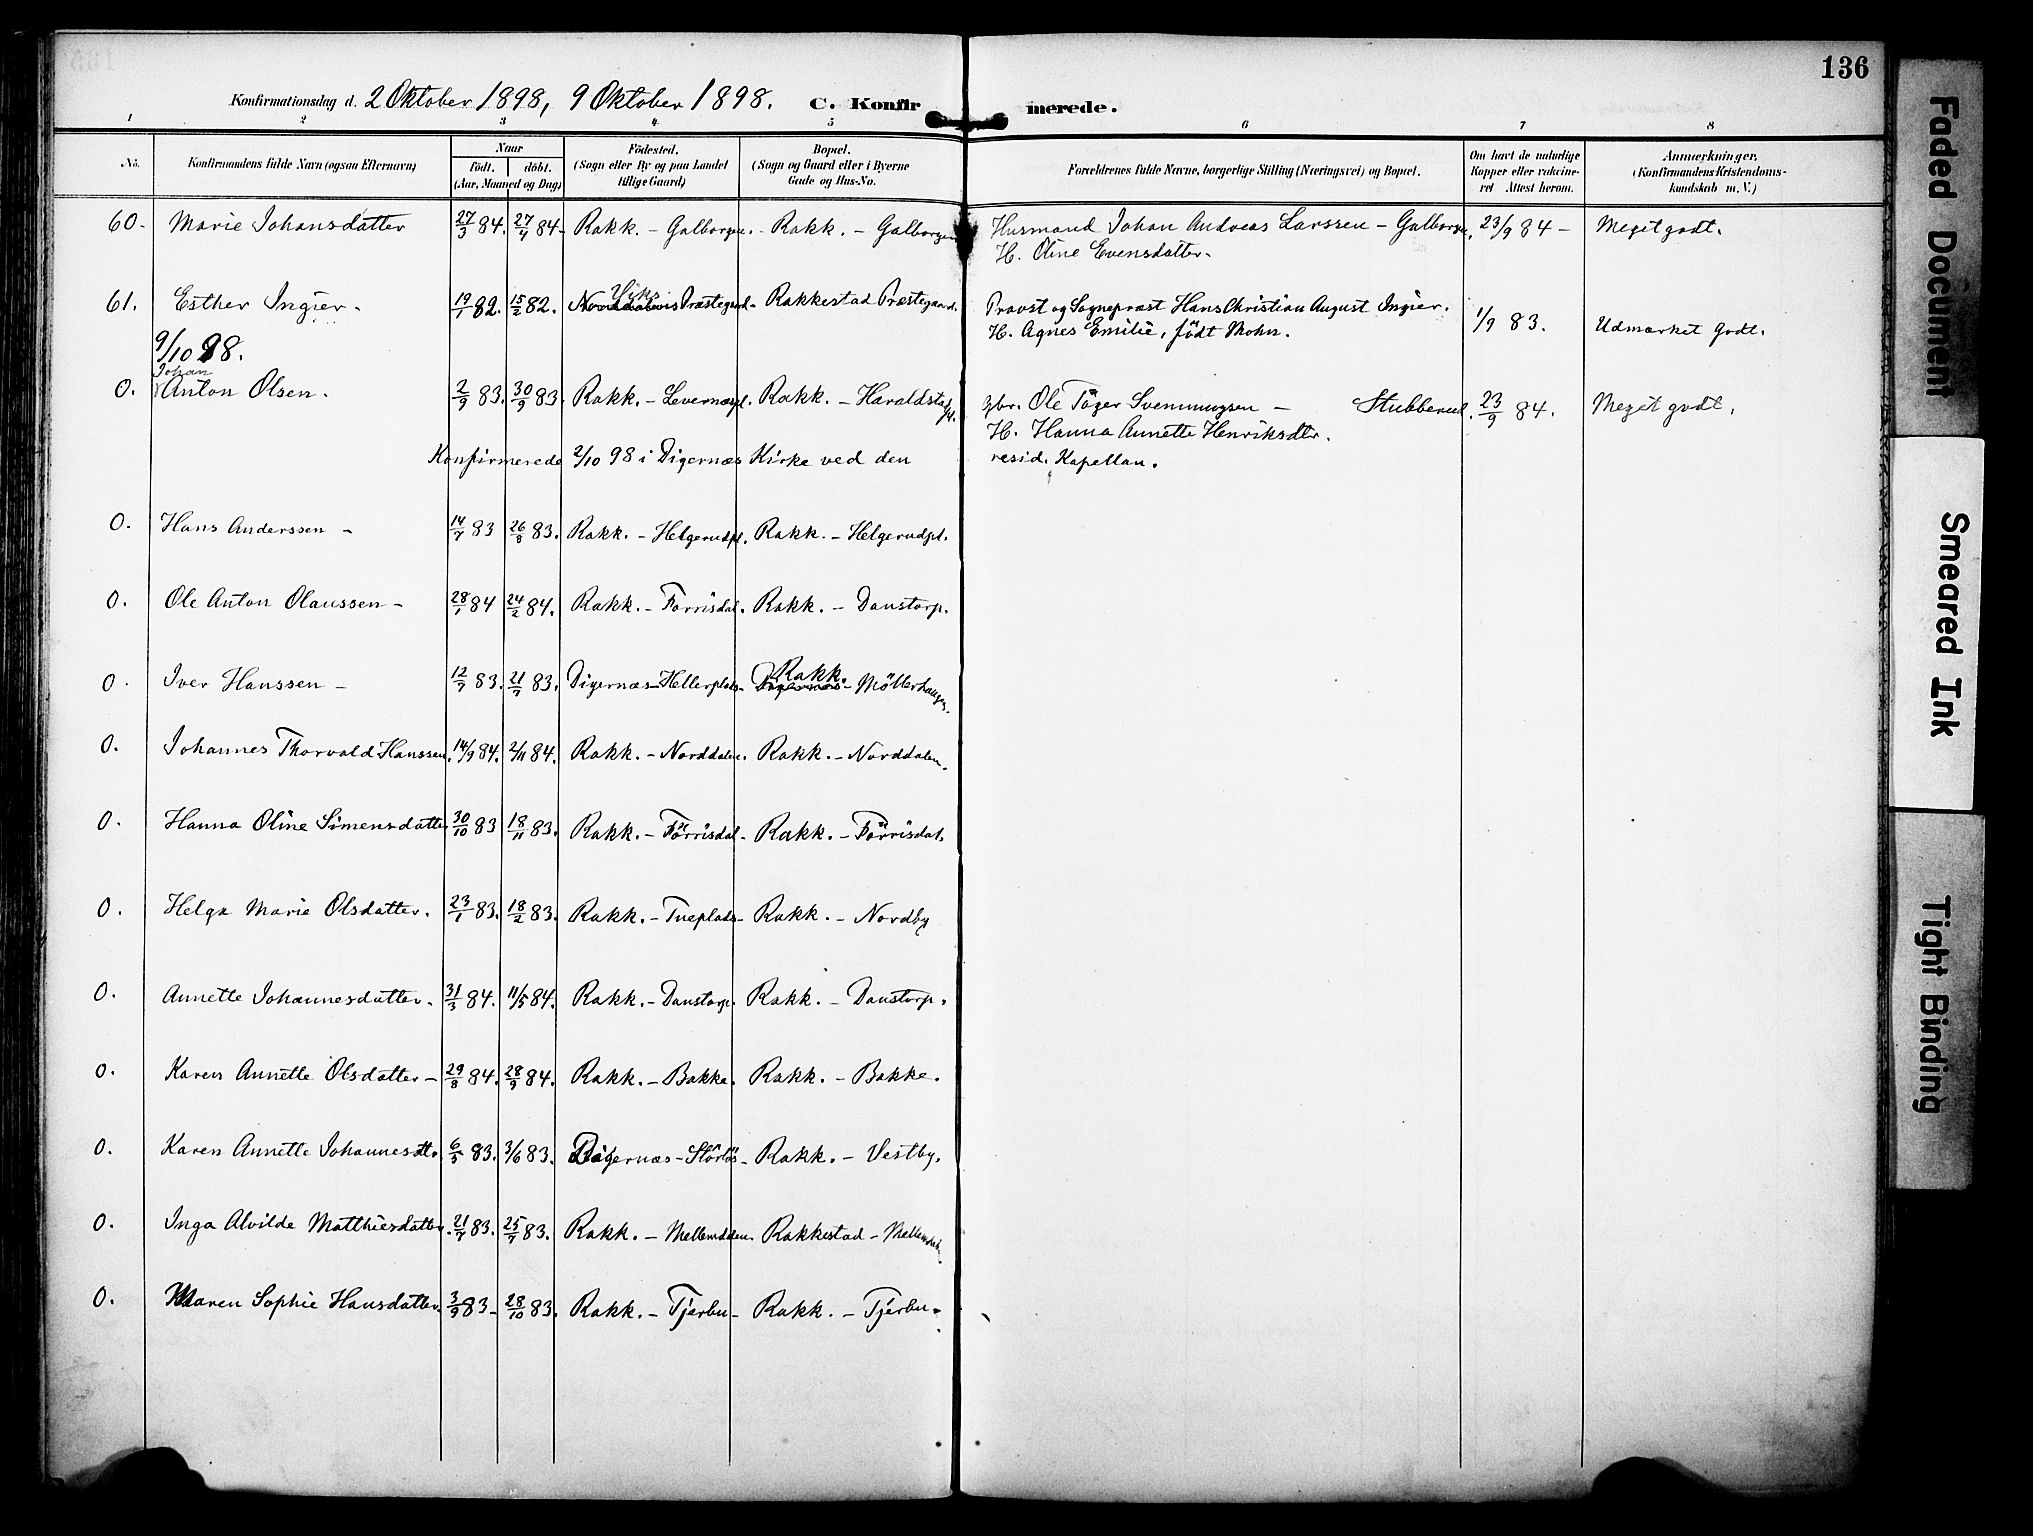 136
Konfirmationsdag d. 2 Oktober 1898, 9 Oktober 1898. C. Konfirmerede.
1 2 3 4 5 6 7 8
No. Konfirmandens fulde Navn (ogsaa Efternavn) Naar født. døbt. (Aar, Maaned og Dag) Fødested. (Sogn eller By og paa Landet tillige Gaard) Bopæl. (Sogn og Gaard eller i Byerne Gade og Hus-No. Forældrenes fulde Navne, borgerlige Stilling (Næringsvei) og Bopæl. Om havt de naturlige Kopper eller vaccineret Attest herom. Anmærkninger. (Konfirmandens Kristendomskundskab m. V.)
60. Marie Johansdatter 27/3 84. 27/4 84. Rakk. - Galborgen. Rakk. - Galborgen Husmand Johan Andreas Larssen - Galborgen. 23/9 84 - Meget godt.
H. Oline Evensdatter.
61. Esther Ingier. 19/1 82. 15/2 82. Præstegaard - Rakkestad Præstegaard. Provst og Sognepræst Hans Christian August Ingier. 1/9 83. Udmærket godt.
H. Agnes Emilie, født Mohn.
9/10 98.
0. Johan Anton Olsen. 2/9 83. 30/9 83. Rakk. - Levernæspl. Rakk. - Haraldstadpl. gbr. Ole Tøger Svenningsen - Stubberud. 23/9 84. Meget godt.
H. Hanna Annette Henriksdtr.
Konfirmerede 2/10 98 i Digernæs Kirke ved den resid. Kapellan.
0. Hans Anderssen - 14/7 83 26/8 83. Rakk. - Helgerudpl. Rakk. - Helgerudpl.
0. Ole Anton Olaussen - 28/1 84 24/2 84. Rakk. - Førrisdal. Rakk. - Danstorp.
0. Iver Hanssen - 12/7 83. 21/7 83. Digernæs - Hellerplads - Digernæs Rakk. - Møllerhaugen.
0. Johannes Thorvald Hanssen. 14/9 84. 2/11 84. Rakk. - Norddalen. Rakk. - Norddalen.
0. Hanna Oline Simensdatter 30/10 83 18/11 83. Rakk. - Førrisdal - Rakk. - Førrisdal.
0. Helga Marie Olsdatter. 23/1 83. 18/2 83. Rakk. - Tueplads - Rakk. - Nordby
0. Annette Johannesdatter. 31/3 84. 11/5 84. Rakk. - Danstorp. Rakk. - Danstorp.
0. Karen Annette Olsdatter - 29/8 84. 28/9 84. Rakk. - Bakke. Rakk. - Bakke.
0. Karen Annette Johannesdtr. 6/5 83. 3/6 83. Digernæs - Rakk. - Vestby.
0. Inga Alvilde Matthiesdatter. 21/7 83. 25/7 83. Rakk. - Mellemdalen. Rakkestad - Mellemdalen.
0. Maren Sophie Hansdatter. 3/9 83 - 28/10 83. Rakk. - Tjerbu - Rakk. - Tjerbu.
Faded Document
Smeared Ink
Tight Binding